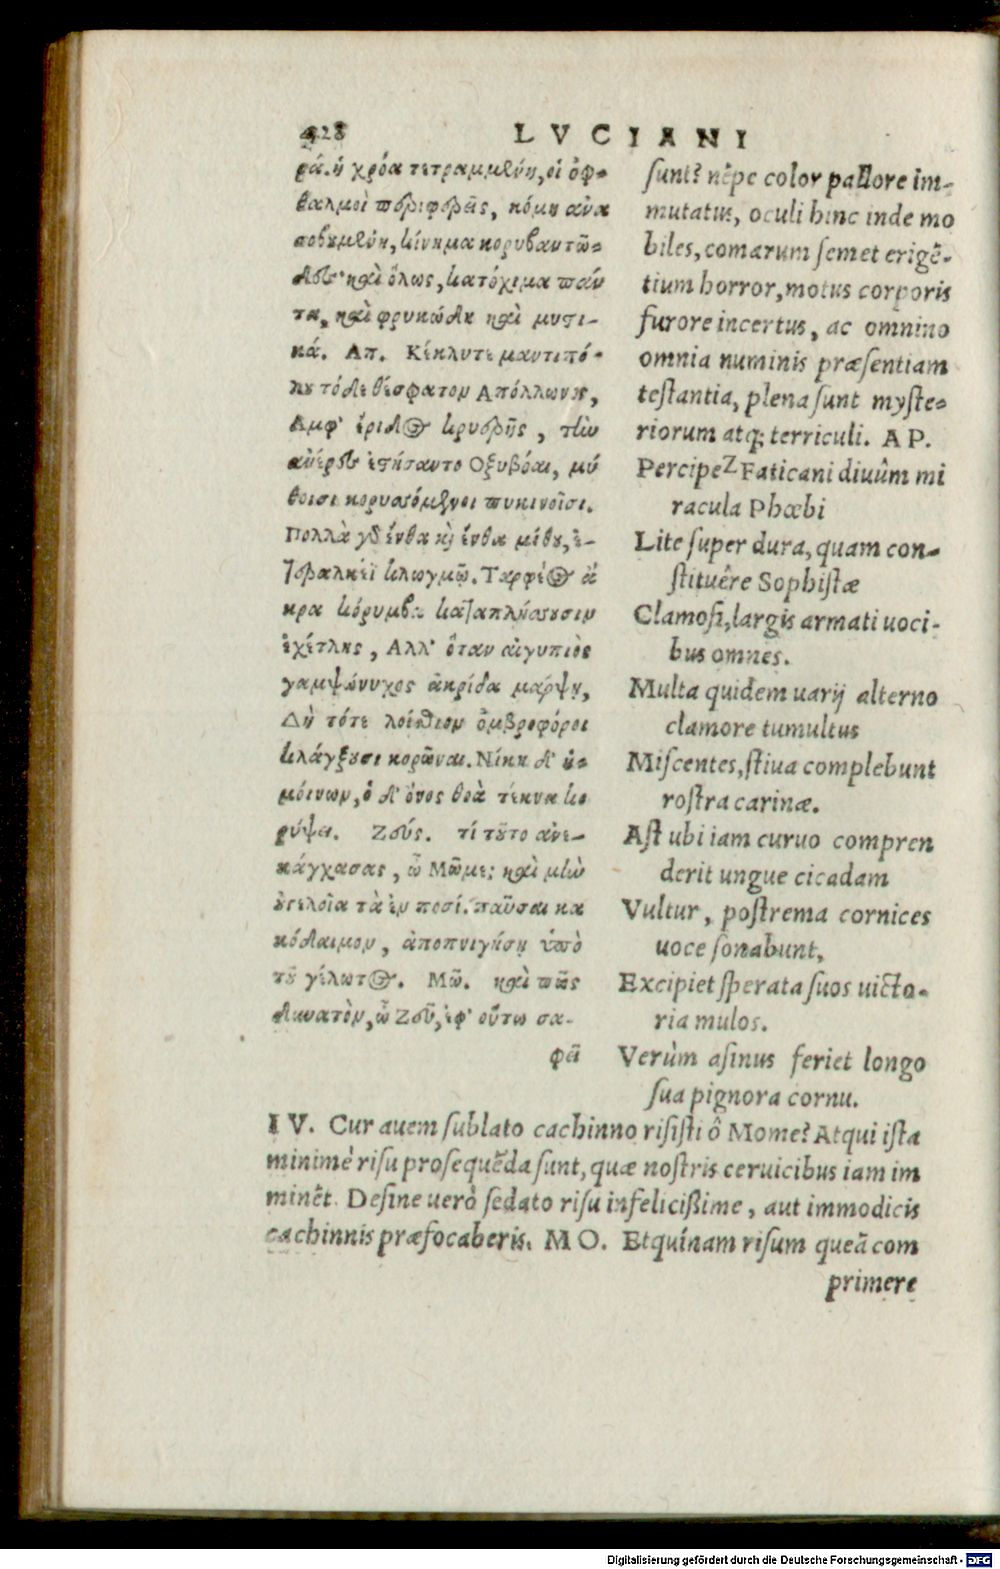 428
LVCIANI
ρά. ἡ χρόα τετραμμένη, οἱ ὀφ-
θαλμοὶ περιφερεῖς, κόμη ἀνα
σοβουμένη, κίνημα κορυβαντῶ-
δες· καὶ ὅλως, κατόχιμα πάν
τα, καὶ φρικώδη καὶ μυστι-
κά. Απ. Κέκλυτε μαντιπό-
λου τόδε θέσφατον Απόλλωνος,
Αμφ' ἔριδος κρυερῆς, τὴν
ἀνέρες ἐστήσαντο Οξυβόαι, μύ
θοισι κορυσσόμενοι πυκινοῖσι.
Πολλὰ γδ ἔνθα κὶ ἔνθα μόθου, ἑ-
τεραλκέϊ κλωγμῷ. Ταρφέος ἄ
κρα κόρυμβα καταπλήσσουσιν
ἐχέτλης, Αλλ' ὅταν αἰγυπιὸς
γαμψώνυχος ἀκρίδα μάρψῃ,
Δὴ τότε λοίσθιον ὀμβροφόροι
κλάγξουσι κορῶναι. Νίκη δ' ἡ-
μιόνων, ὁ δ' ὄνος θοὰ τέκνα κο
ρύψει. Ζεύς. τί τοῦτο ἀνε-
κάγχασας, ὦ Μῶμε; καὶ μὴν
οὐ γελοῖα τὰ ἐν ποσί. παῦσαι κα
κόδαιμον, ἀποπνιγήσῃ ὑπὸ
τοῦ γέλωτος. Μῶ. καὶ πῶς
δυνατὸν, ὦ Ζεῦ, ἐφ' οὕτω σα-
φεῖ
sunt? nẽpe color pallore im-
mutatus, oculi hinc inde mo
biles, comarum semet erigẽ-
tium horror, motus corporis
furore incertus, ac omnino
omnia numinis præsentiam
testantia, plena sunt myste-
riorum atq; terriculi. AP.
Percipe Z Faticani diuûm mi
racula Phœbi
Lite super dura, quam con-
stituêre Sophistæ
Clamosi, largis armati uoci-
bus omnes.
Multa quidem uarij alterno
clamore tumultus
Miscentes, stiua complebunt
rostra carinæ.
Ast ubi iam curuo compren
derit ungue cicadam
Vultur, postrema cornices
uoce sonabunt,
Excipiet sperata suos uicto-
ria mulos.
Verùm asinus feriet longo
sua pignora cornu.
IV. Cur auem sublato cachinno risisti ô Mome? Atqui ista
minimè risu prosequẽda sunt, quæ nostris ceruicibus iam im
minẽt. Desine uerò sedato risu infelicißime, aut immodicis
cachinnis præfocaberis. MO. Et quínam risum queã com
primere
Digitalisierung gefördert durch die Deutsche Forschungsgemeinschaft - DFG